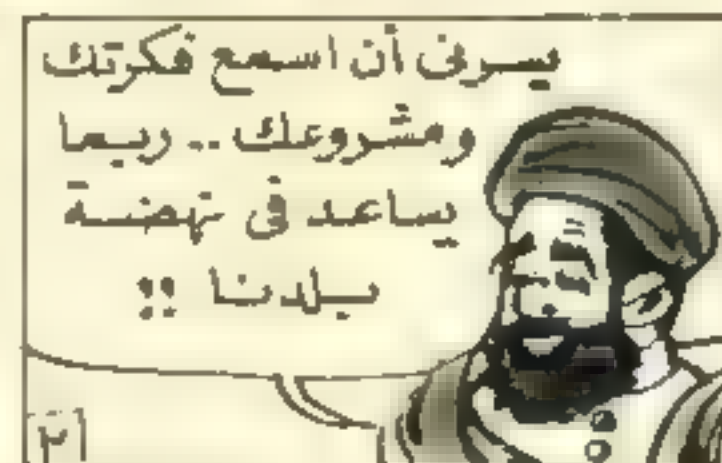 يسرنى أن اسمع فكرتك
ومشروعك .. ربما
يساعد فى نهضة
بلدنا !!
٢